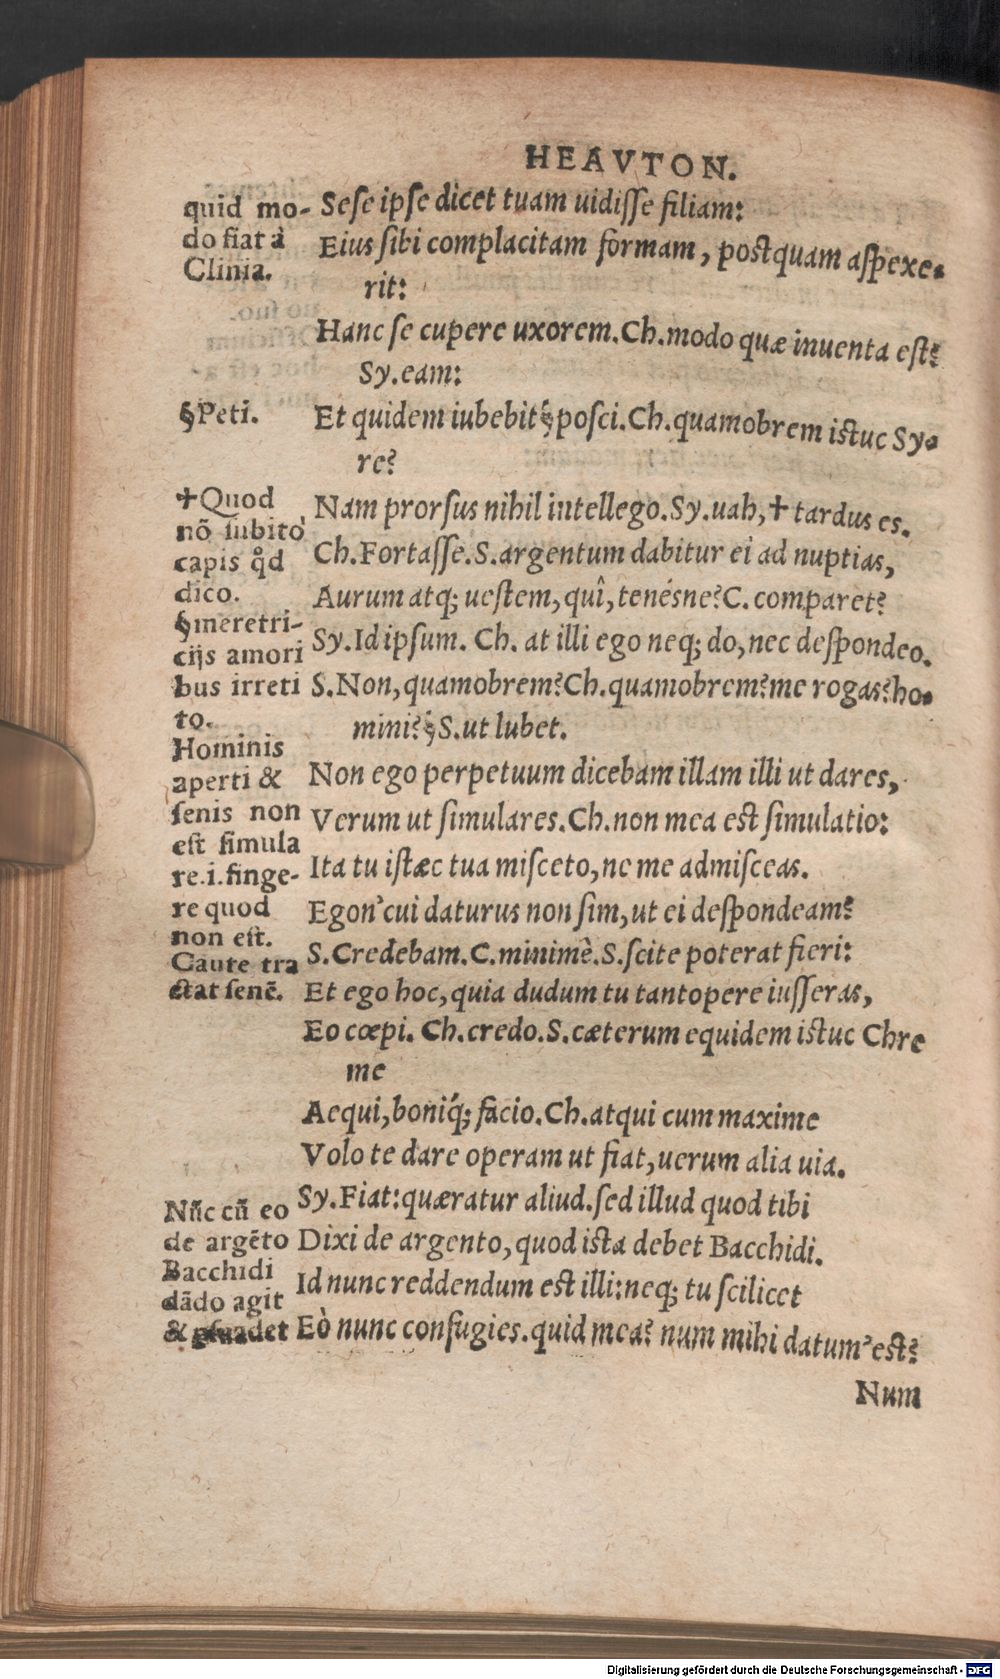 HEAVTON.
quid mo-
do fiat à
Clinia.
§Peti.
✝Quod
nõ ſubito
capis qd̊
dico.
§meretri-
cijs amori
bus irreti
to.
Hominis
aperti &
ſenis non
eſt ſimula
re.i.finge-
re quod
non eſt.
Caute tra
ctat ſenẽ.
Nũc cũ eo
de argẽto
Bacchidi
dãdo agit
& ꝑſuadet
Seſe ipſe dicet tuam uidiſſe filiam:
Eius ſibi complacitam formam, poſtquam aſpexe-
rit:
Hanc ſe cupere uxorem. Ch. modo quæ inuenta eſt?
Sy. eam:
Et quidem iubebit § poſci. Ch. quamobrem iſtuc Sy-
re?
Nam prorſus nihil intellego. Sy. uah, ✝ tardus es.
Ch. Fortaſſe. S. argentum dabitur ei ad nuptias,
Aurum atq; ueſtem, quî, tenésne? C. comparet?
Sy. Id ipſum. Ch. at illi ego neq; do, nec deſpondeo.
S. Non, quamobrem? Ch. quamobrem? me rogas? ho-
mini? § S. ut lubet.
Non ego perpetuum dicebam illam illi ut dares,
Verum ut ſimulares. Ch. non mea eſt ſimulatio:
Ita tu iſtæc tua miſceto, ne me admiſceas.
Egon' cui daturus non ſim, ut ei deſpondeam?
S. Credebam. C. minimè. S. ſcite poterat fieri:
Et ego hoc, quia dudum tu tantopere iuſſeras,
Eo cœpi. Ch. credo. S. cæterum equidem iſtuc Chre
me
Aequi, boniq́; facio. Ch. atqui cum maxime
Volo te dare operam ut fiat, uerum alia uia.
Sy. Fiat: quæratur aliud. ſed illud quod tibi
Dixi de argento, quod iſta debet Bacchidi.
Id nunc reddendum eſt illi: neq; tu ſcilicet
Eò nunc confugies. quid mea? num mihi datum' eſt?
Num
Digitalisierung gefördert durch die Deutsche Forschungsgemeinschaft - DFG